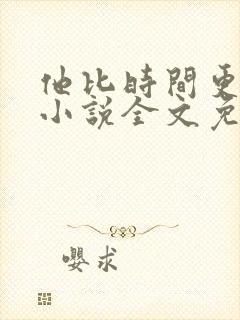 他比時間更
小說全文免
嚶求